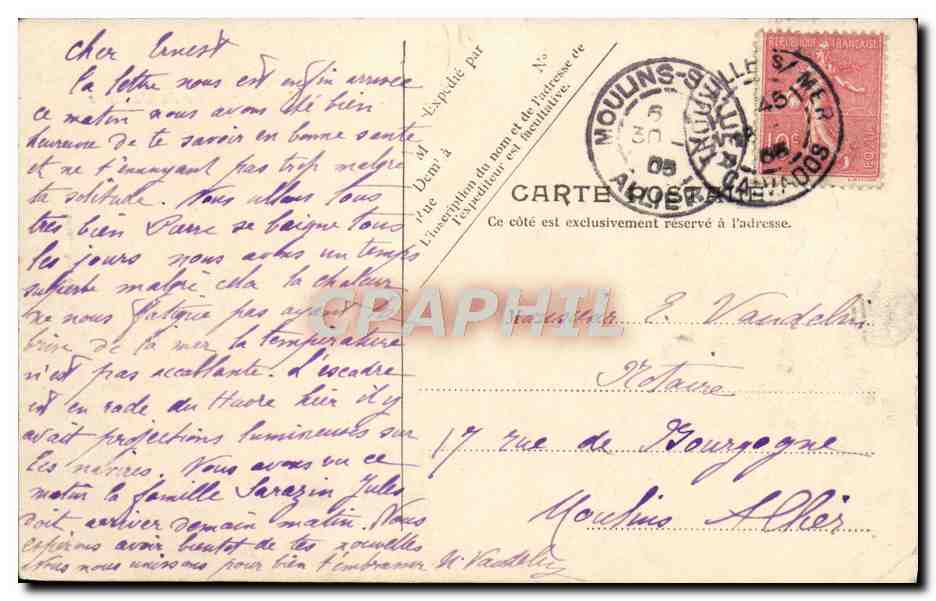 Cher Ernest
La lettre nous est enfin arrivée
ce matin nous avons été bien
heureuse de te savoir en bonne santé
et ne t'ennuyant pas trop malgré
ta solitude. Nous allons tous
très bien Pierre se baigne tous
les jours nous avons un temps
superbe malgré cela la chaleur
ne nous fatigue pas ayant la
brise de la mer la température
n'est pas accablante. L'escadre
est en rade du Havre hier il y
avait projections lumineuses sur
les navires. Nous avons vu ce
matin la famille Sarazin Jules
doit arriver demain matin. Nous
espérons avoir bientot de tes nouvelles
nous nous unissons pour bien t'embrasser
Expédié par
M
Demt à
Rue
No
L'inscription du nom et de l'adresse de
l'expéditeur est facultative.
CARTE POSTALE
Ce côté est exclusivement réservé à l'adresse.
MOULINS
6
30
05
ALLIER
S/ MER
45
05
CALVADOS
RÉPUBLIQUE FRANÇAISE
10c
CPAPHIL
Monsieur E. Vaudelin
Notaire
17 rue de Bourgogne
Moulins Allier